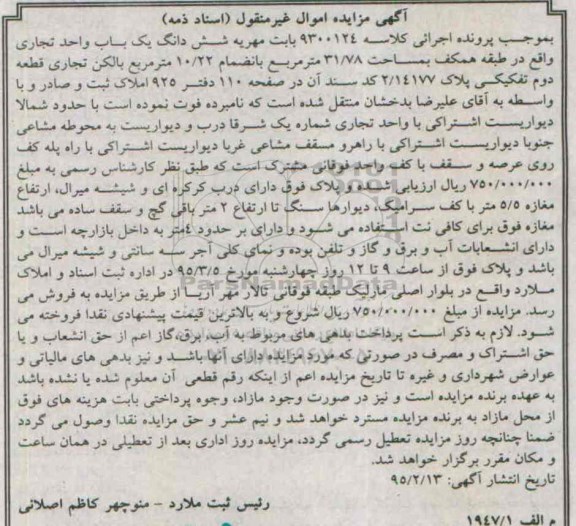 آگهی مزایده اموال غیرمنقول (اسناد ذمه)
بموجب پرونده اجرائی کلاسه ۹۳۰۰۱۲۴ بابت مهریه شش دانگ یک باب واحد تجاری
واقع در طبقه همکف بمساحت ۳۱/۷۸ مترمربع بانضمام ۱۰/۲۲ مترمربع بالکن تجاری قطعه
دوم تفکیکی پلاک ۲/۱۴۱۷۷ کد سند آن در صفحه ۱۱۰ دفتر ۹۲۵ املاک ثبت و صادر و با
واسطه به آقای علیرضا بدخشان منتقل شده است که نامبرده فوت نموده است با حدود شمالا
دیواریست اشتراکی با واحد تجاری شماره یک شرقا درب و دیواریست به محوطه مشاعی
جنوبا دیواریست اشتراکی با راهرو مسقف مشاعی غربا دیواریست اشتراکی با راه پله کف
روی عرصه و سقف با کف واحد فوقانی مشترک است که طبق نظر کارشناس رسمی به مبلغ
۷۵۰/۰۰۰/۰۰۰ ریال ارزیابی شده و پلاک فوق دارای درب کرکره ای و شیشه میرال، ارتفاع
مغازه ۵/۵ متر با کف سرامیک، دیوارها سنگ تا ارتفاع ۲ متر باقی گچ و سقف ساده می باشد
مغازه فوق برای کافی نت استفاده می شود و دارای بر حدود ٤متر به داخل بازارچه است و
دارای انشعابات آب و برق و گاز و تلفن بوده و نمای کلی آجر سه سانتی و شیشه میرال می
باشد و پلاک فوق از ساعت ۹ تا ۱۲ روز چهارشنبه مورخ ۹۵/۳/۵ در اداره ثبت اسناد و املاک
ملارد واقع در بلوار اصلی مارلیک طبقه فوقانی تالار مهر آریا از طریق مزایده به فروش می
رسد. مزایده از مبلغ ۷۵۰/۰۰۰/۰۰۰ ریال شروع و به بالاترین قیمت پیشنهادی نقدا فروخته می
شود. لازم به ذکر است پرداخت بدهی های مربوط به آب، برق، گاز اعم از حق انشعاب و یا
حق اشتراک و مصرف در صورتی که مورد مزایده دارای آنها باشد و نیز بدهی های مالیاتی و
عوارض شهرداری و غیره تا تاریخ مزایده اعم از اینکه رقم قطعی آن معلوم شده یا نشده باشد
به عهده برنده مزایده است و نیز در صورت وجود مازاد، وجوه پرداختی بابت هزینه های فوق
از محل مازاد به برنده مزایده مسترد خواهد شد و نیم عشر و حق مزایده نقدا وصول می گردد
ضمنا چنانچه روز مزایده تعطیل رسمی گردد، مزایده روز اداری بعد از تعطیلی در همان ساعت
و مکان مقرر برگزار خواهد شد.
تاریخ انتشار آگهی: ۹۵/۲/۱۳
رئیس ثبت ملارد - منوچهر کاظم اصلانی
م الف ۱۹۴۷/۱